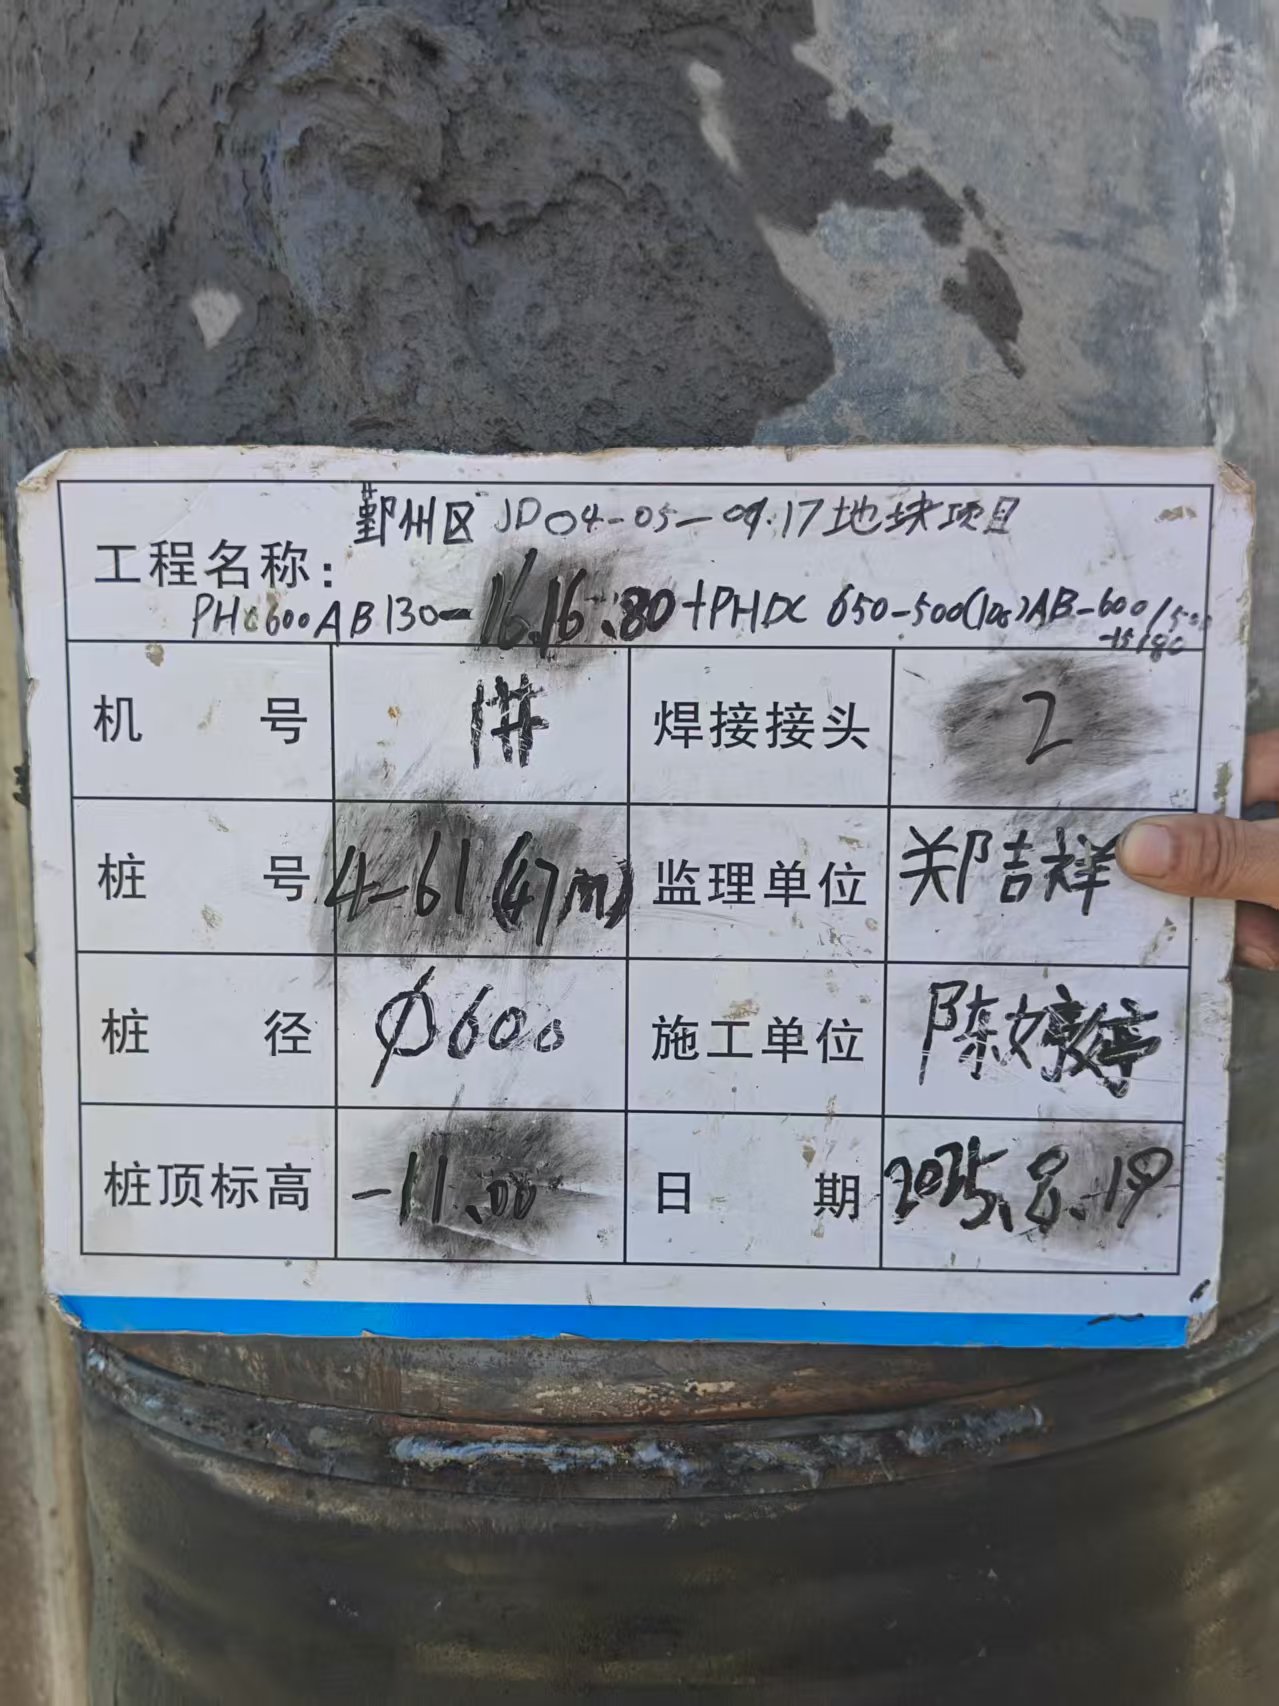 鄞州区JD04-05-09.17地块项目
工程名称:
PHC600AB130-16.16:80+PHDC 650-500(100)AB-600/500
-15/80
机 号 1# 焊接接头 2
桩 号 4-61(47m) 监理单位 郑吉祥
桩 径 Φ600 施工单位 陈婷婷
桩顶标高 -11.00 日 期 2025.8.19